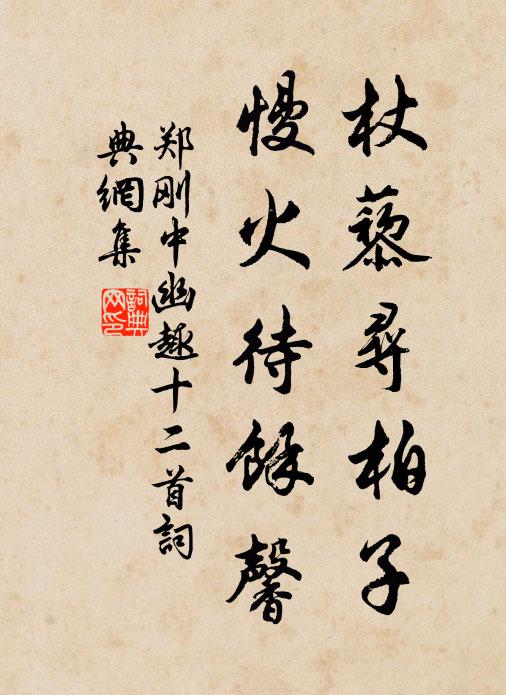 杖藜尋柏子
慢火待餘馨
郑刚中幽趣十二首詞
典網集
詞典
网印